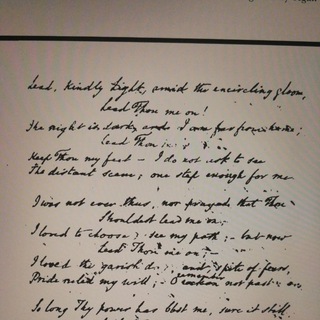 Lead, Kindly Light, amid the encircling gloom,
Lead Thou me on!
The night is dark, and I am far from home;
Lead Thou
Keep Thou my feet – I do not ask to see
The distant scene; one step enough for me
I was not ever thus, nor prayed that Thou
Shouldst lead me on.
I loved to choose & see my path; – but now
Lead Thou me on; –
I loved the garish day, and, spite of fears,
Pride ruled my will; – remember not past
So long Thy power has blest me, sure it still